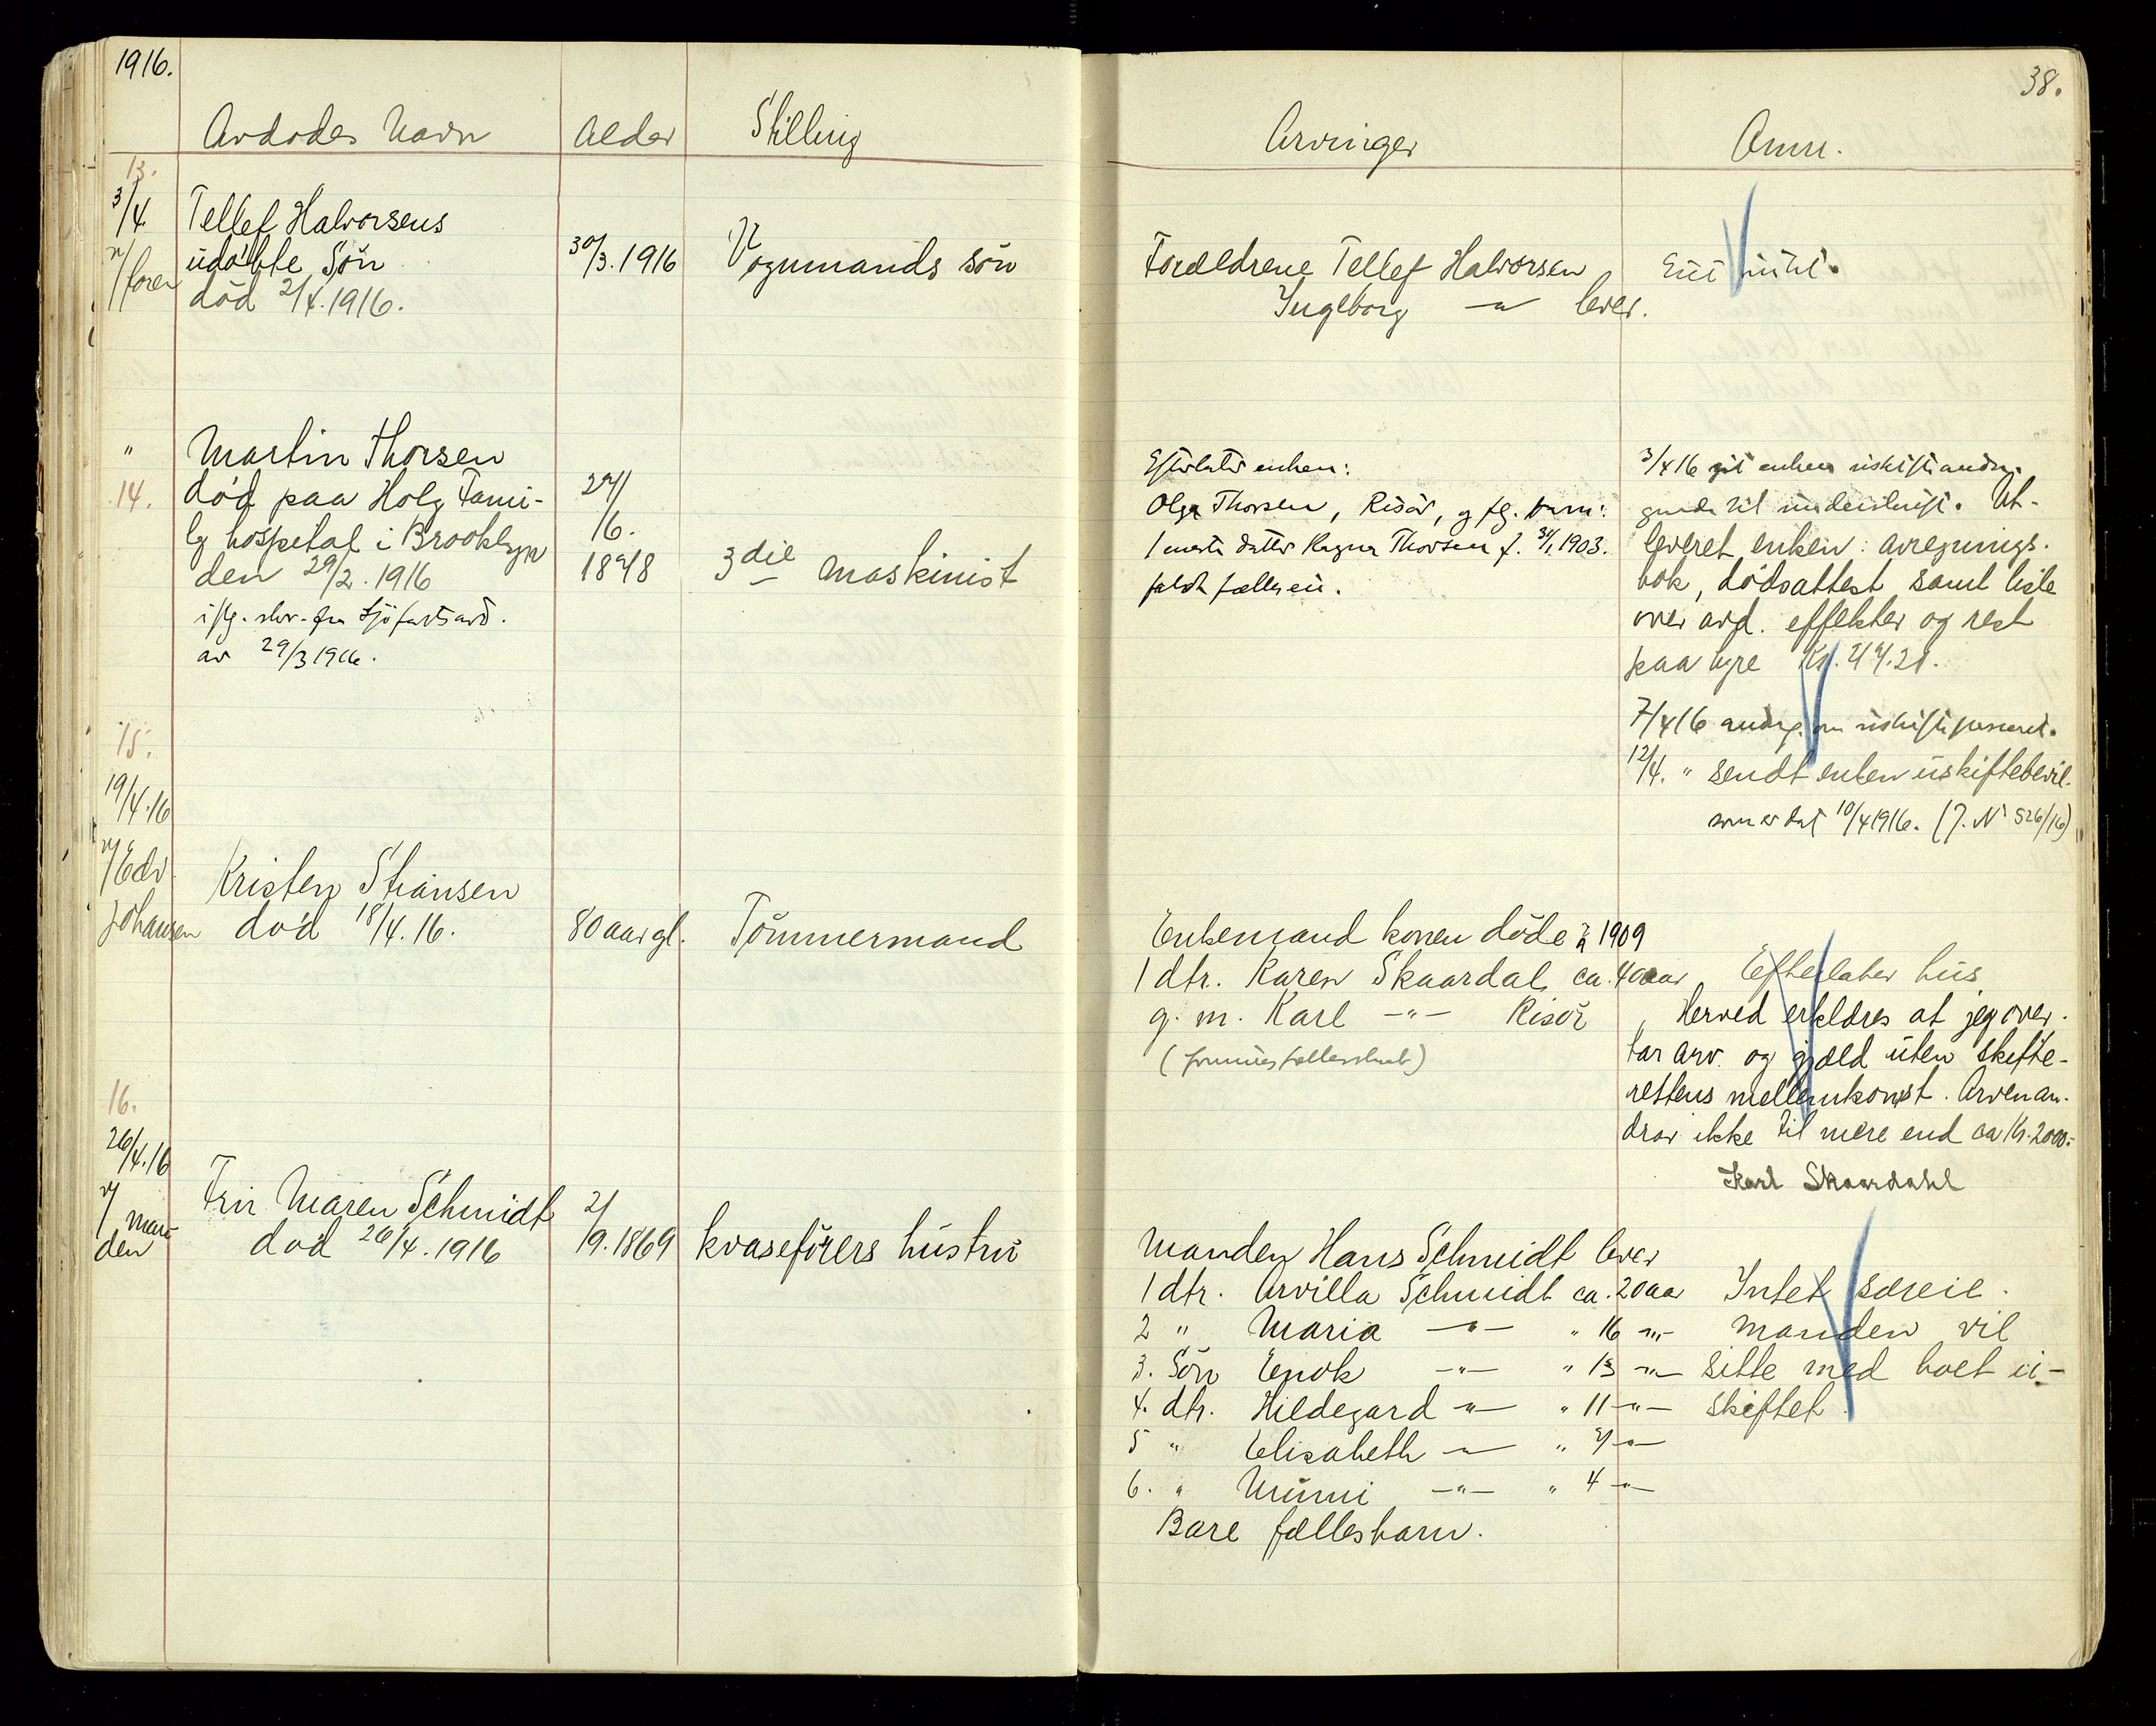 1916.
38.
Avdødes Navn
Alder
Stilling
Arvinger
Anm.
13.
3/4.
Tellef Halvorsens
udøbte Søn
død 2/4. 1916.
30/3. 1916
Vognmands søn
Forældrene Tellef Halvorsen
Ingeborg —"— lever.
Eier intet.
"
14.
Martin Thorsen
død paa Holy Fami-
ly hospital i Brooklyn
den 29/2. 1916
iflg. skr. fra Sjøfartsavd.
av 29/3 1916.
16.
1878
3die Maskinist
Efterlater enken:
Olga Thorsen, Risør, og flg. barn:
1 eneste datter Ragna Thorsen f. 1903.
fuldt fælleseie.
3/4 16 git enken uskifteandra-
gende til underskrift. Ut-
leveret enken: avregnings-
bok, dødsattest samt liste
over avd. effekter og rest
paa hyre Kr. 47.21.
7/4 16 andrag. om uskifte
12/4. " sendt enken uskiftebevil.
som er dat. 10/4 1916. (J. N 526/16)
15.
19/4.16
v/ Edv.
Johansen
Kristen Stiansen
død 18/4. 16.
80 aar gl.
Tømmermand
Enkemand konen døde 1909
1 dtr. Karen Skaardal ca. 40 aar
g. m. Karl —"— Risør
(formuesfællesskab)
Efterlater hus
Herved erklæres at jeg over-
tar arv og gjæld uten skifte-
rettens mellemkomst. Arven an-
drar ikke til mere end ca Kr. 2000.-
Karl Skaardahl
16.
26/4.16
v/ man
den
Fru Maren Schmidt
død 26/4. 1916
2/
/9. 1869
kvaseførers hustru
Manden Hans Schmidt lever
1 dtr. Arvilla Schmidt ca. 20 aar
2 " Maria —"— " 16 —"—
3. Søn Enok —"— " 13 —"—
4. dtr. Hildegard —"— " 11 —"—
5 " Elisabeth —"— " 7 —"—
6. " Mimmi —"— " 4 —"—
Bare fællesbarn.
Intet særeie.
Manden vil
sitte med boet u-
skiftet.